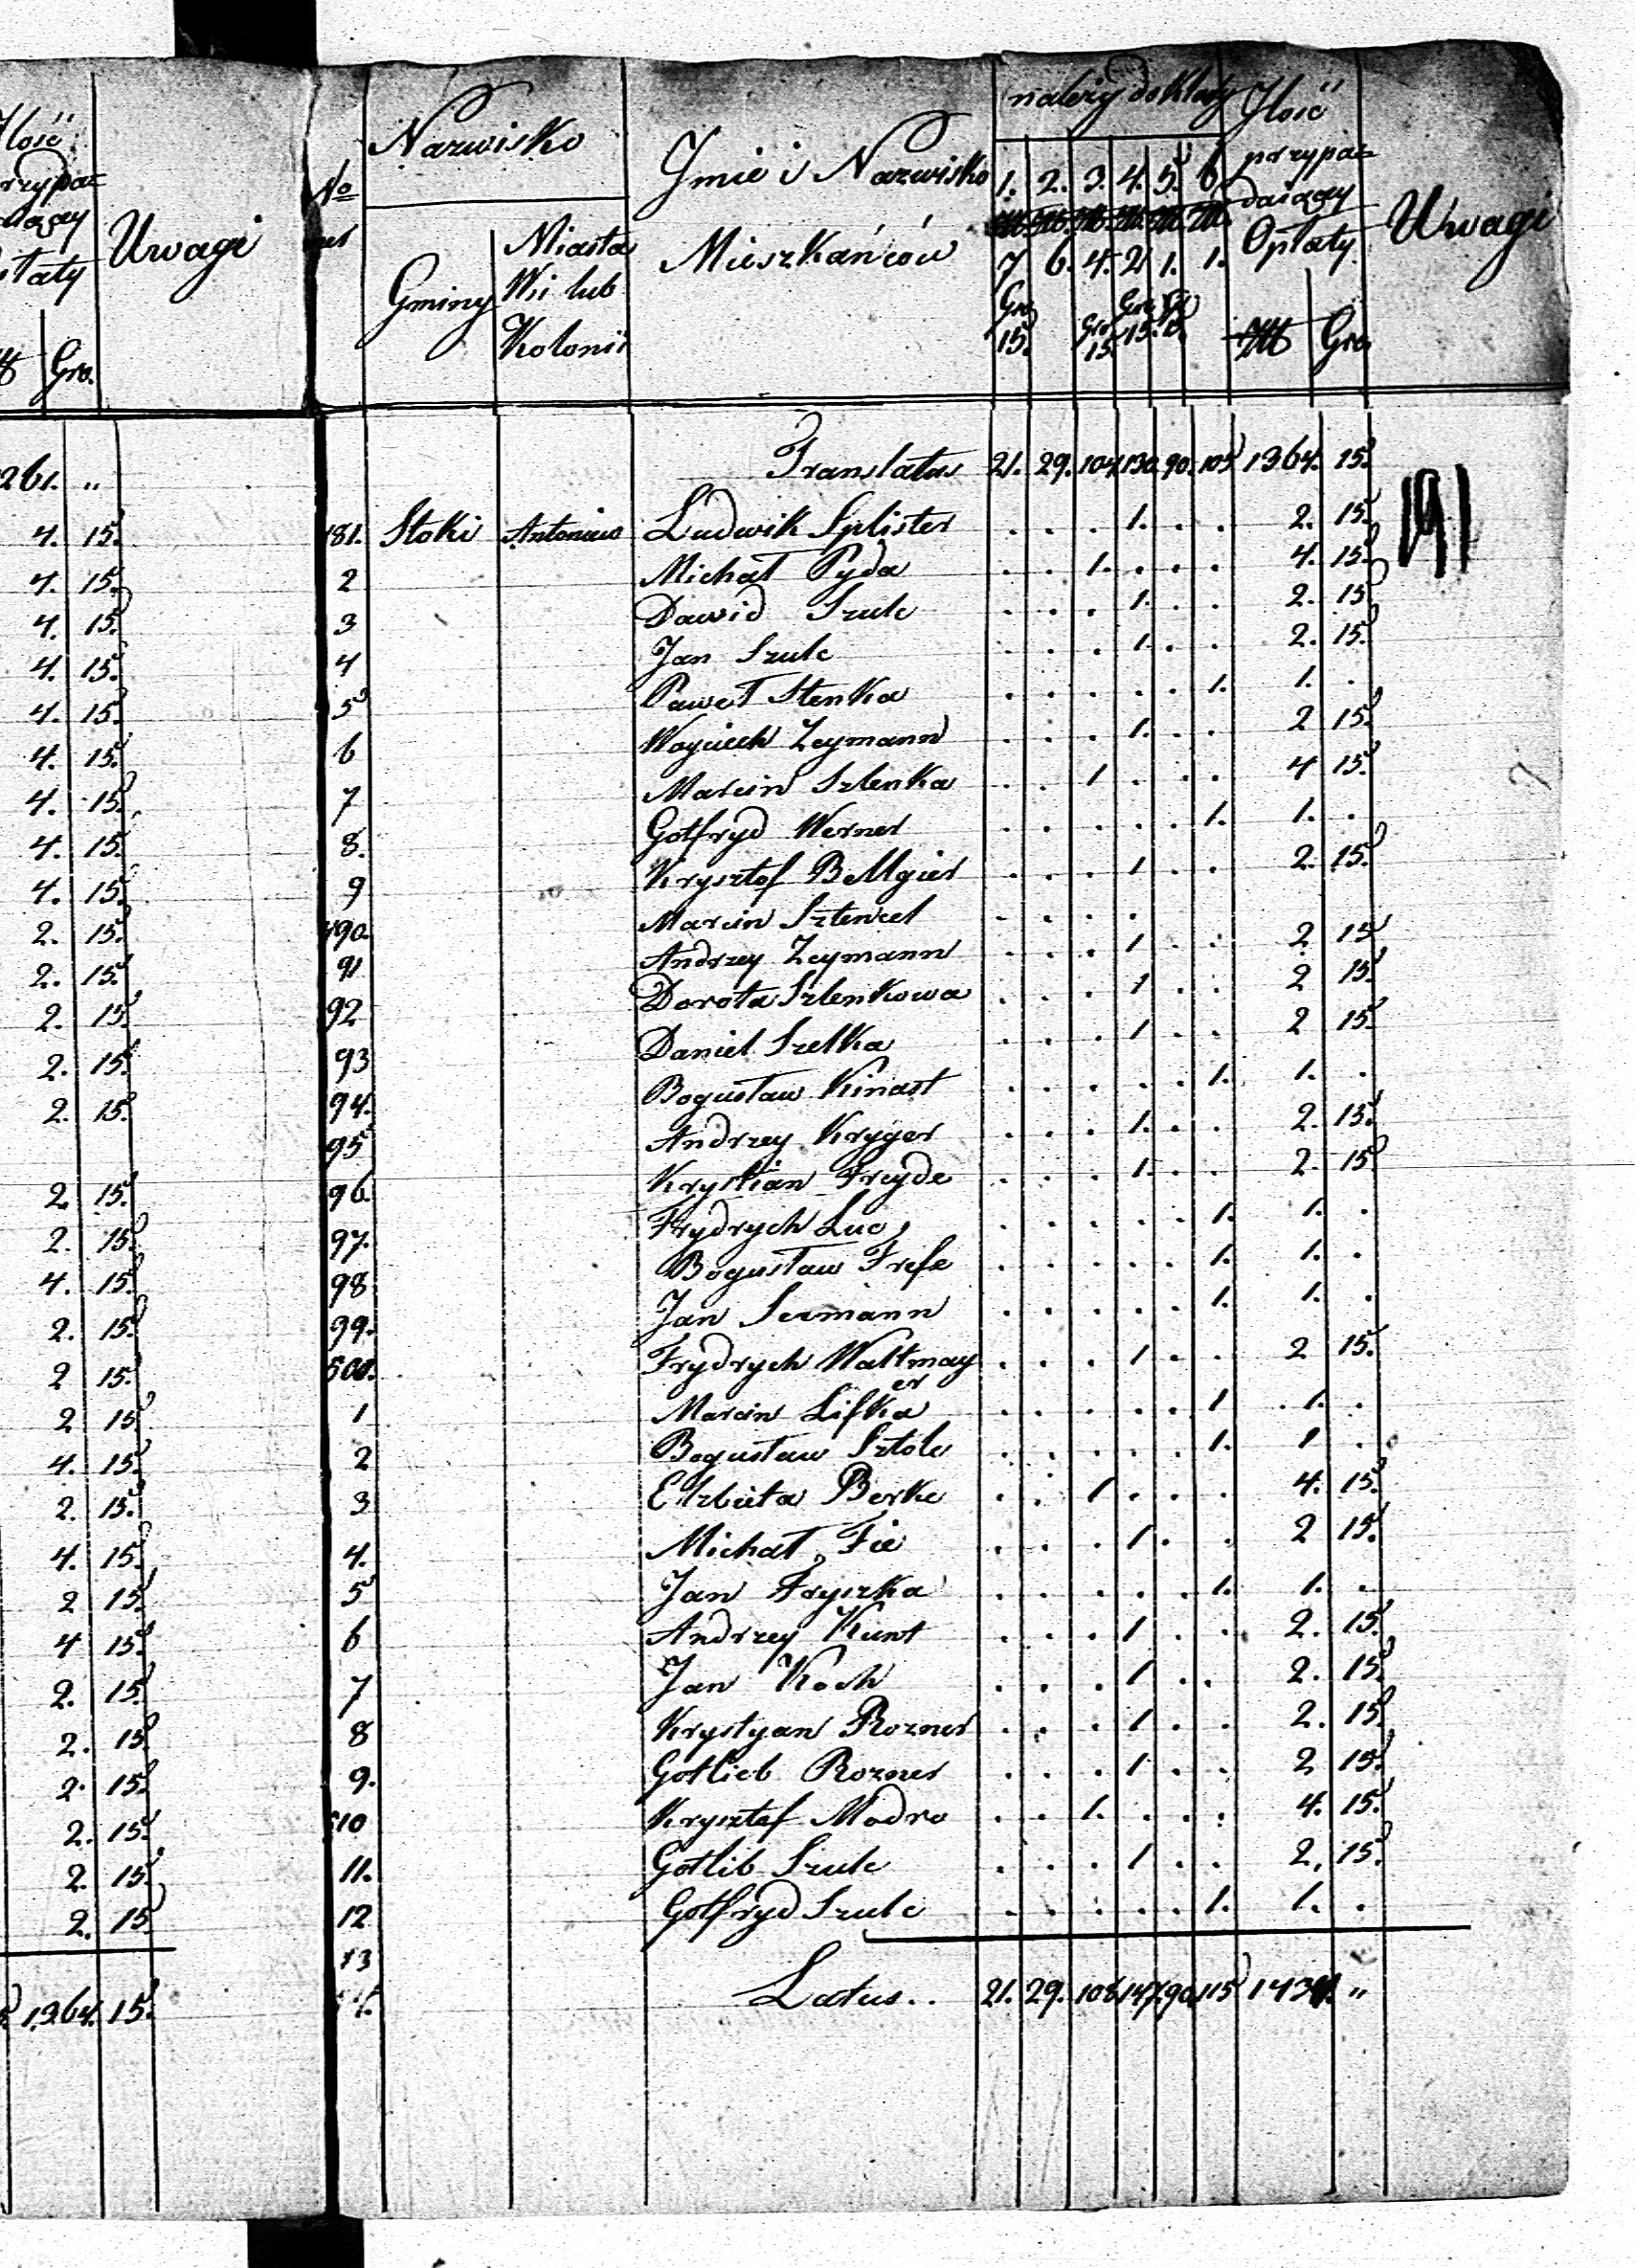 Ilość
Uwagi
Gro.
261. "
4. 15.
4. 15.
4. 15.
4. 15.
4. 15.
4. 15.
4. 15.
4. 15.
4. 15.
2. 15.
2. 15.
2. 15.
2. 15.
2. 15.
2. 15.
2. 15.
4. 15.
2. 15.
2 15.
2 15
4. 15.
2. 15.
4. 15.
2 15.
4 15.
2. 15.
2. 15.
2. 15.
2. 15.
2. 15.
2. 15
1364. 15.
No
Nazwisko
Gminy
Miasta
Wsi lub
Kolonii
Jmie i Nazwisko
Mieszkańców
należy do Klasy
1. 2. 3. 4. 5. 6.
7 6. 4. 2 1. 1.
Gro 15. Gro 15. Gro 15. 15.
Ilość
przypa=
daiący
Opłaty
Gro
Uwagi
Translatus 21. 29. 104. 130. 90. 105 1364. 15.
191
481. Stoki Antoniew Ludwik Splister . . . 1. . . 2. 15.
2 Michał Pyda . . 1. . . . 4. 15.
3 Dawid Szulc . . . 1. . . 2. 15
4 Jan Szulc . . . 1. . . 2. 15.
5 Paweł Stenka . . . . . 1. 1. .
6 Woyciech Zeymann . . . 1. . . 2 15.
7 Marcin Szlenka . . 1 . . . 4 15.
8. Gotfryd Werner . . . . . 1. 1. .
9 Krysztof Bellgier . . . 1 . . 2. 15.
490. Marcin Sztencel . . . .
91 Andrzey Zeymann . . . 1 . . 2 15
92 Dorota Szlenkowa . . . 1 . . 2 15.
93 Daniel Szelka . . . 1 . . 2 15.
94. Bogusław Kinast . . . . . 1. 1. .
95 Andrzey Kryger . . . 1. . . 2. 15.
96. Krystian Freyde . . . 1. . . 2. 15.
97. Frydrych Luc . . . . . 1. 1. .
98 Bogusław Frefe . . . . . 1. 1. .
99. Jan Sermann . . . . . 1. 1. .
500. Frydrych Waltmay . . . 1 . . 2 15.
er
1 Marcin Lifka . . . . . 1 1. .
2 Bogusław Sztolc . . . . . 1. 1 .
3 Elzbieta Berke . . 1 . . . 4. 15.
4. Michał Fie . . . 1. . . 2 15.
5 Jan Fryszka . . . . . 1. 1. .
6 Andrzey Kunt . . . 1 . . 2. 15.
7 Jan Koch . . . 1 . . 2. 15.
8 Krystyan Rozner . . . 1 . . 2. 15.
9. Gotlieb Rozner . . . 1 . . 2 15.
510 Krysztof Modro . . 1. . . . 4. 15.
11. Gotlib Szulc . . . 1 . . 2. 15.
12 Gotfryd Szulc . . . . . 1. 1. .
13
Latus.. 21. 29. 108. 147. 90. 115 1434. "